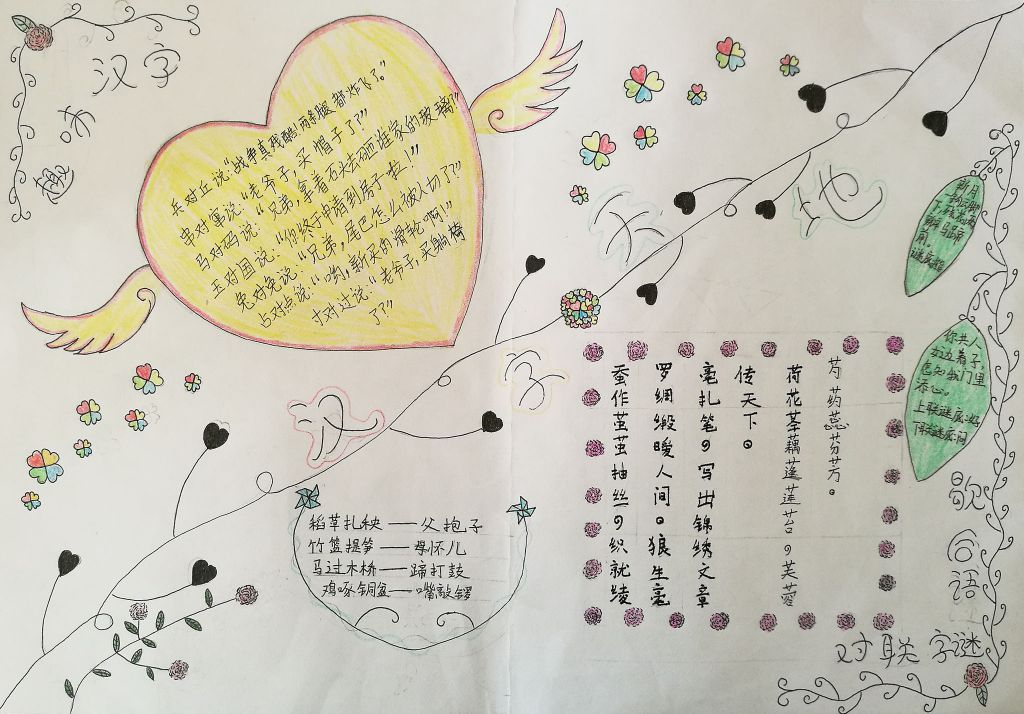 趣味
汉字
兵对丘说：“战争真残酷，两条腿都炸飞了。”
串对窜说：“老爷子，买帽子了？”
马对码说：“兄弟，拿着石头去砸谁家的玻璃？”
玉对国说：“你终于申着到房子啦！”
兔对免说：“兄弟，尾巴怎么被人切了？”
占对点说：“哟，新买的滑轮啊！”
寸对过说：“老爷子，买躺椅
了？”
汉字天地
稻草扎秧——父抱子
竹篮提笋——母怀儿
马过木桥——蹄打鼓
鸡啄铜盆——嘴敲锣
芍药蕊芬芳。
荷花莖藕蓬莲苔，芙蓉
传天下。
毫扎笔，写出锦绣文章
罗绸缎暧人间。狼生毫
蚕作茧茧抽丝，织就绫
你共人
女边着子，
怎知我门里
添心。
上联谜底：好
下联谜底：闷
歇后语
对联字谜